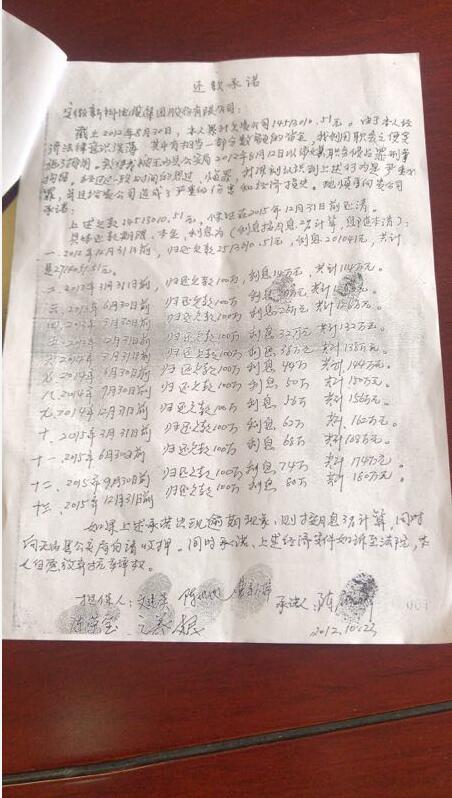 还款承诺
安徽新科电缆集团股份有限公司：
截止2012年8月30日，本人累计欠贵公司14513010.51元。由于本人经
济法律意识淡薄，其中有相当一部分数额的货款，我利用职务之便
挪用。2012年6月12日以涉嫌职务侵占罪刑事
拘留，经过一段时间的
罪，并且给贵公司造成了严重的伤害和经济损失。现慎重向贵公司
承诺：
上述欠款14513010.51元，保证在2015年12月31日前还清。
具体还款期限、本金、利息为（利息按月息2%计算，息随本清）：
一、2012年12月31日前，归还欠款2513010.51元，利息201041元，共计
2714051.51元。
二、2013年3月31日前，归还欠款100万，利息14万元，共计114万元。
三、2013年6月30日前，归还欠款100万，利息20万元，共计
四、2013年9月30日前 归还欠款100万 利息26万元 共计126万元。
五、2013年12月31日前 归还欠款100万 利息32万元 共计132万元。
六、2014年3月31日前 归还欠款100万 利息38万元 共计138万元。
七、2014年6月30日前 归还欠款100万 利息44万 共计144万元。
八、2014年9月30日前 归还欠款100万 利息50万 共计150万元。
九、2014年12月31日前 归还欠款100万 利息56万 共计156万元。
十、2015年3月31日前 归还欠款100万 利息62万 共计162万元。
十一、2015年6月30日前 归还欠款100万 利息68万 共计168万元。
十二、2015年9月30日前 归还欠款100万 利息74万 共计174万元。
十三、2015年12月31日前 归还欠款100万 利息80万 共计180万元。
如果上述承诺出现逾期现象，则按月息3%计算，同时
向无为县公安局申请收押。同时承诺，上述经济案件如诉至法院，本
人自愿放弃抗辩权。
担保人： 承诺人：陈
2012.10.23